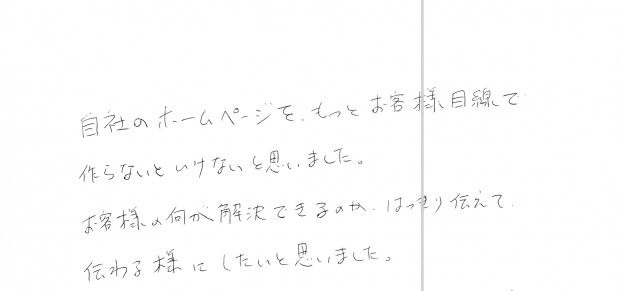 自社のホームページを、もっとお客様目線で
作らないといけないと思いました。
お客様の何が解決できるのか、はっきり伝えて、
伝わる様にしたいと思いました。